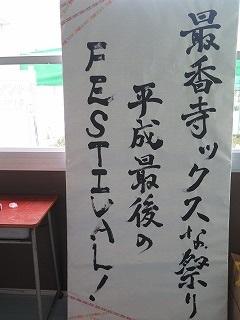 最香寺ックスな祭り
平成最後の
FESTIVAL!